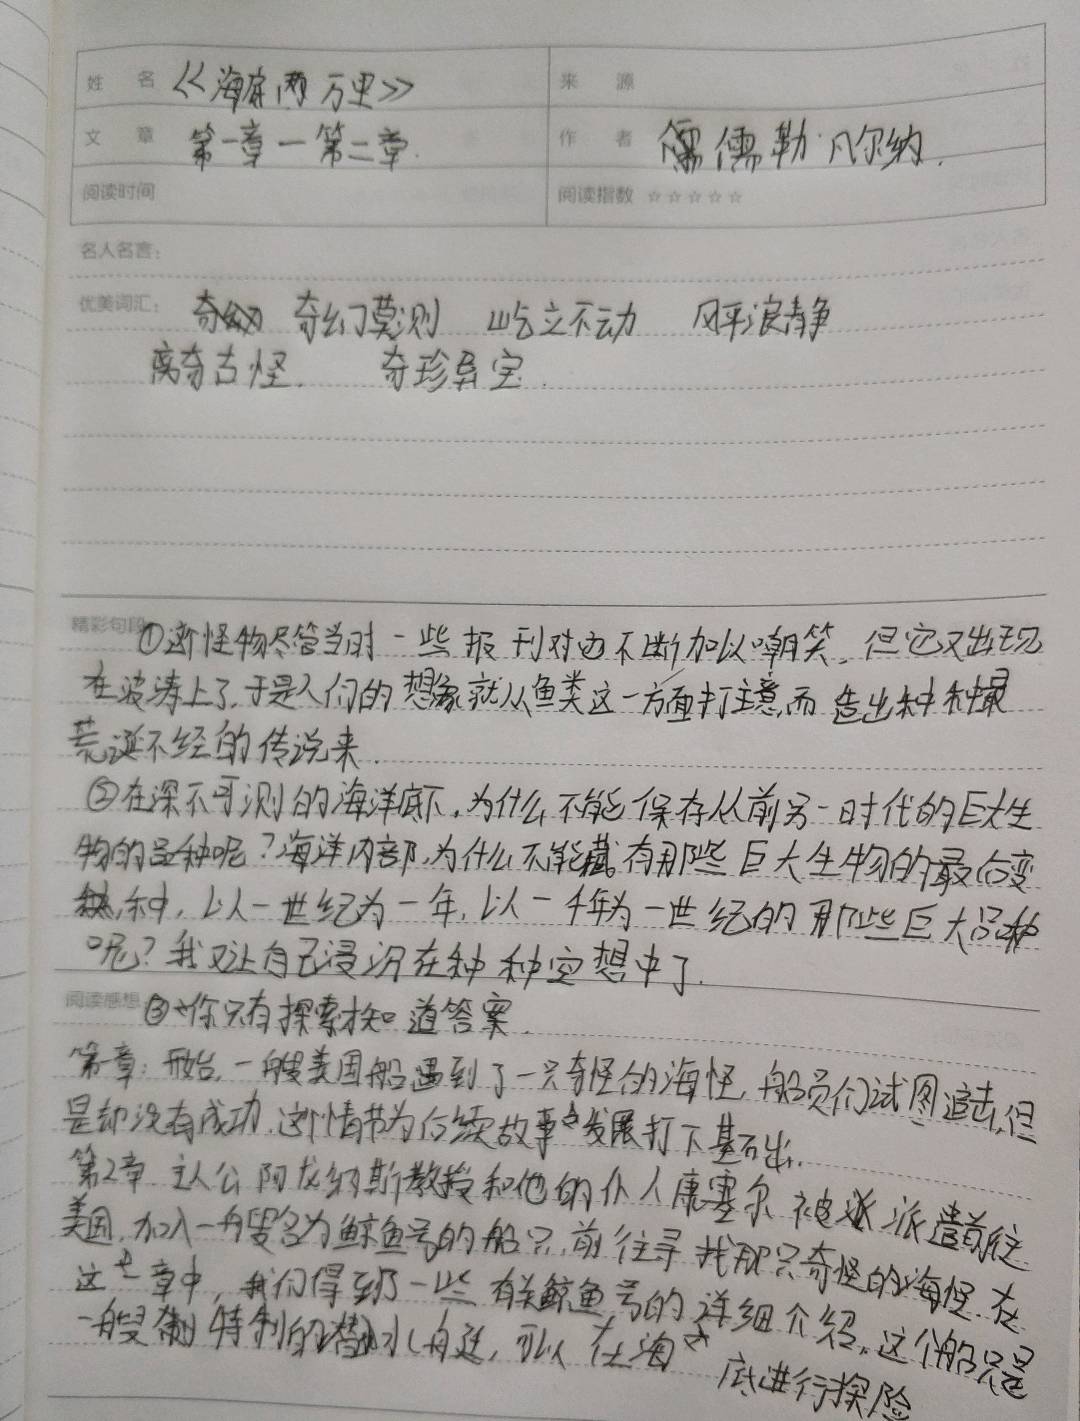 姓 名 《海底两万里》 来 源
文 章 第一章一第二章. 作 者 儒勒·凡尔纳.
阅读时间 阅读指数 ☆☆☆☆☆
名人名言:
优美词汇: 奇幻莫测 屹立不动 风平浪静
离奇古怪. 奇珍异宝.
精彩句段 ①这怪物尽管当时一些报刊对边不断加以嘲笑。但它又出现
在波涛上了,于是人们的想象就从鱼类这一方面打主意,而造出种种最
荒诞不经的传说来.
②在深不可测的海洋底下,为什么不能保存从前另一时代的巨大生
物的品种呢?海洋内部,为什么不能藏有那些巨大生物的最后变
种,以一世纪为一年,以一千年为一世纪的那些巨大品种
呢?我又让自己浸沉在种种空想中了.
阅读感想: ③你只有探索才知道答案.
第一章:开始,一艘美国船遇到了一只奇怪的海怪,船员们试图追击,但
是却没有成功.这个情节为后续故事发展打下基础.
第2章 主人公阿龙纳斯教授和他的仆人康塞尔被派遣前往
美国,加入一艘名为鲸鱼号的船只,前往寻找那只奇怪的海怪.在
这一章中,我们得到了一些有关鲸鱼号的详细介绍,这个船只是
一艘特制的潜水舟艇,可以在海底进行探险